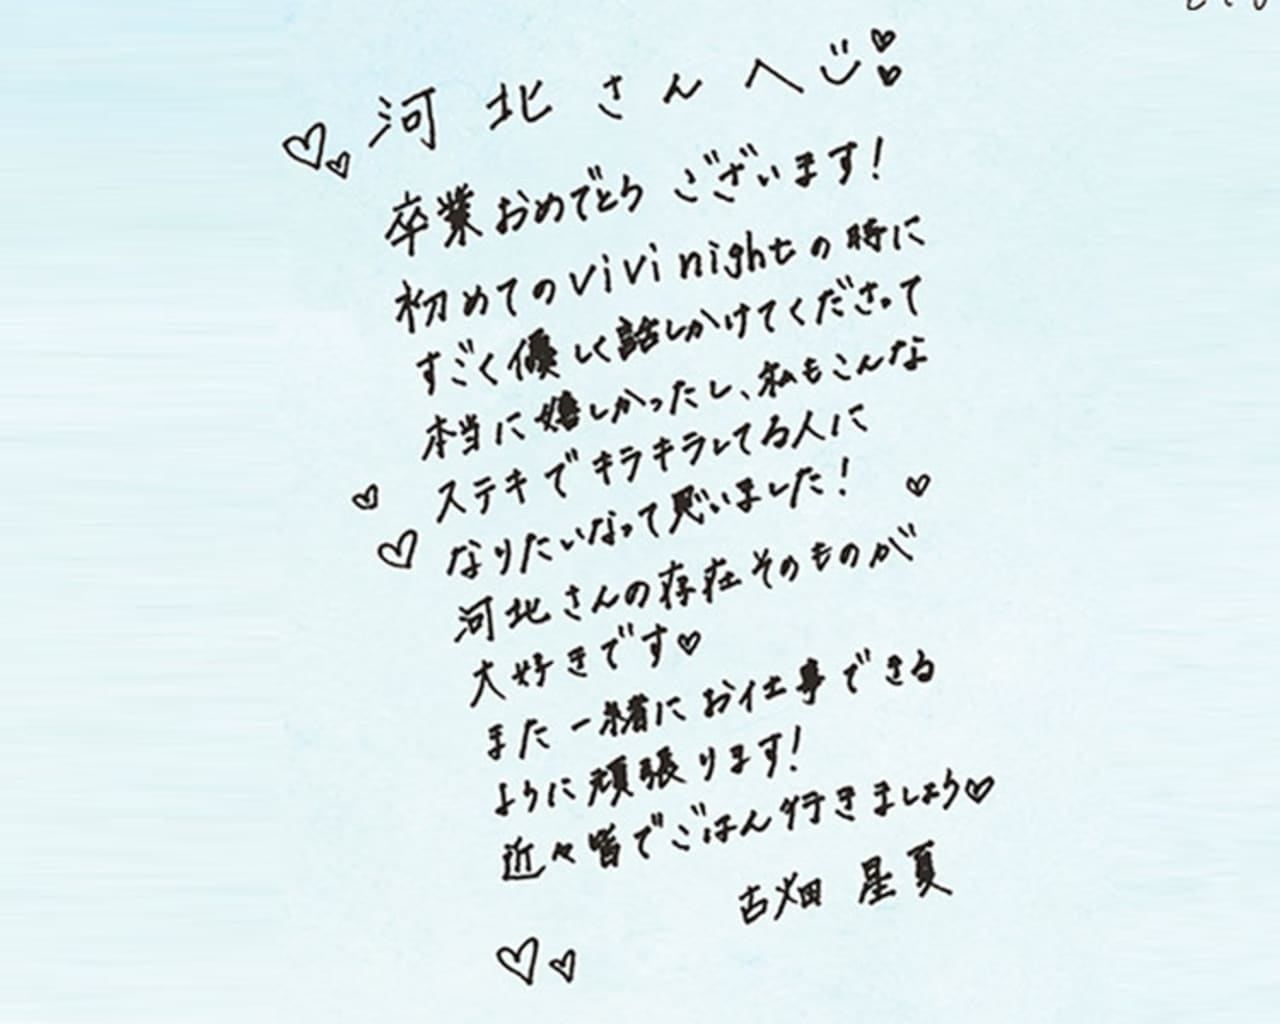 河北さんへ
卒業おめでとうございます!
初めてのViVi nightの時に
すごく優しく話しかけてくださって
本当に嬉しかったし、私もこんな
ステキでキラキラしてる人に
なりたいなって思いました!
河北さんの存在そのものが
大好きです♡
また一緒にお仕事できる
ように頑張ります!
近々皆でごはん行きましょう♡
古畑 星夏